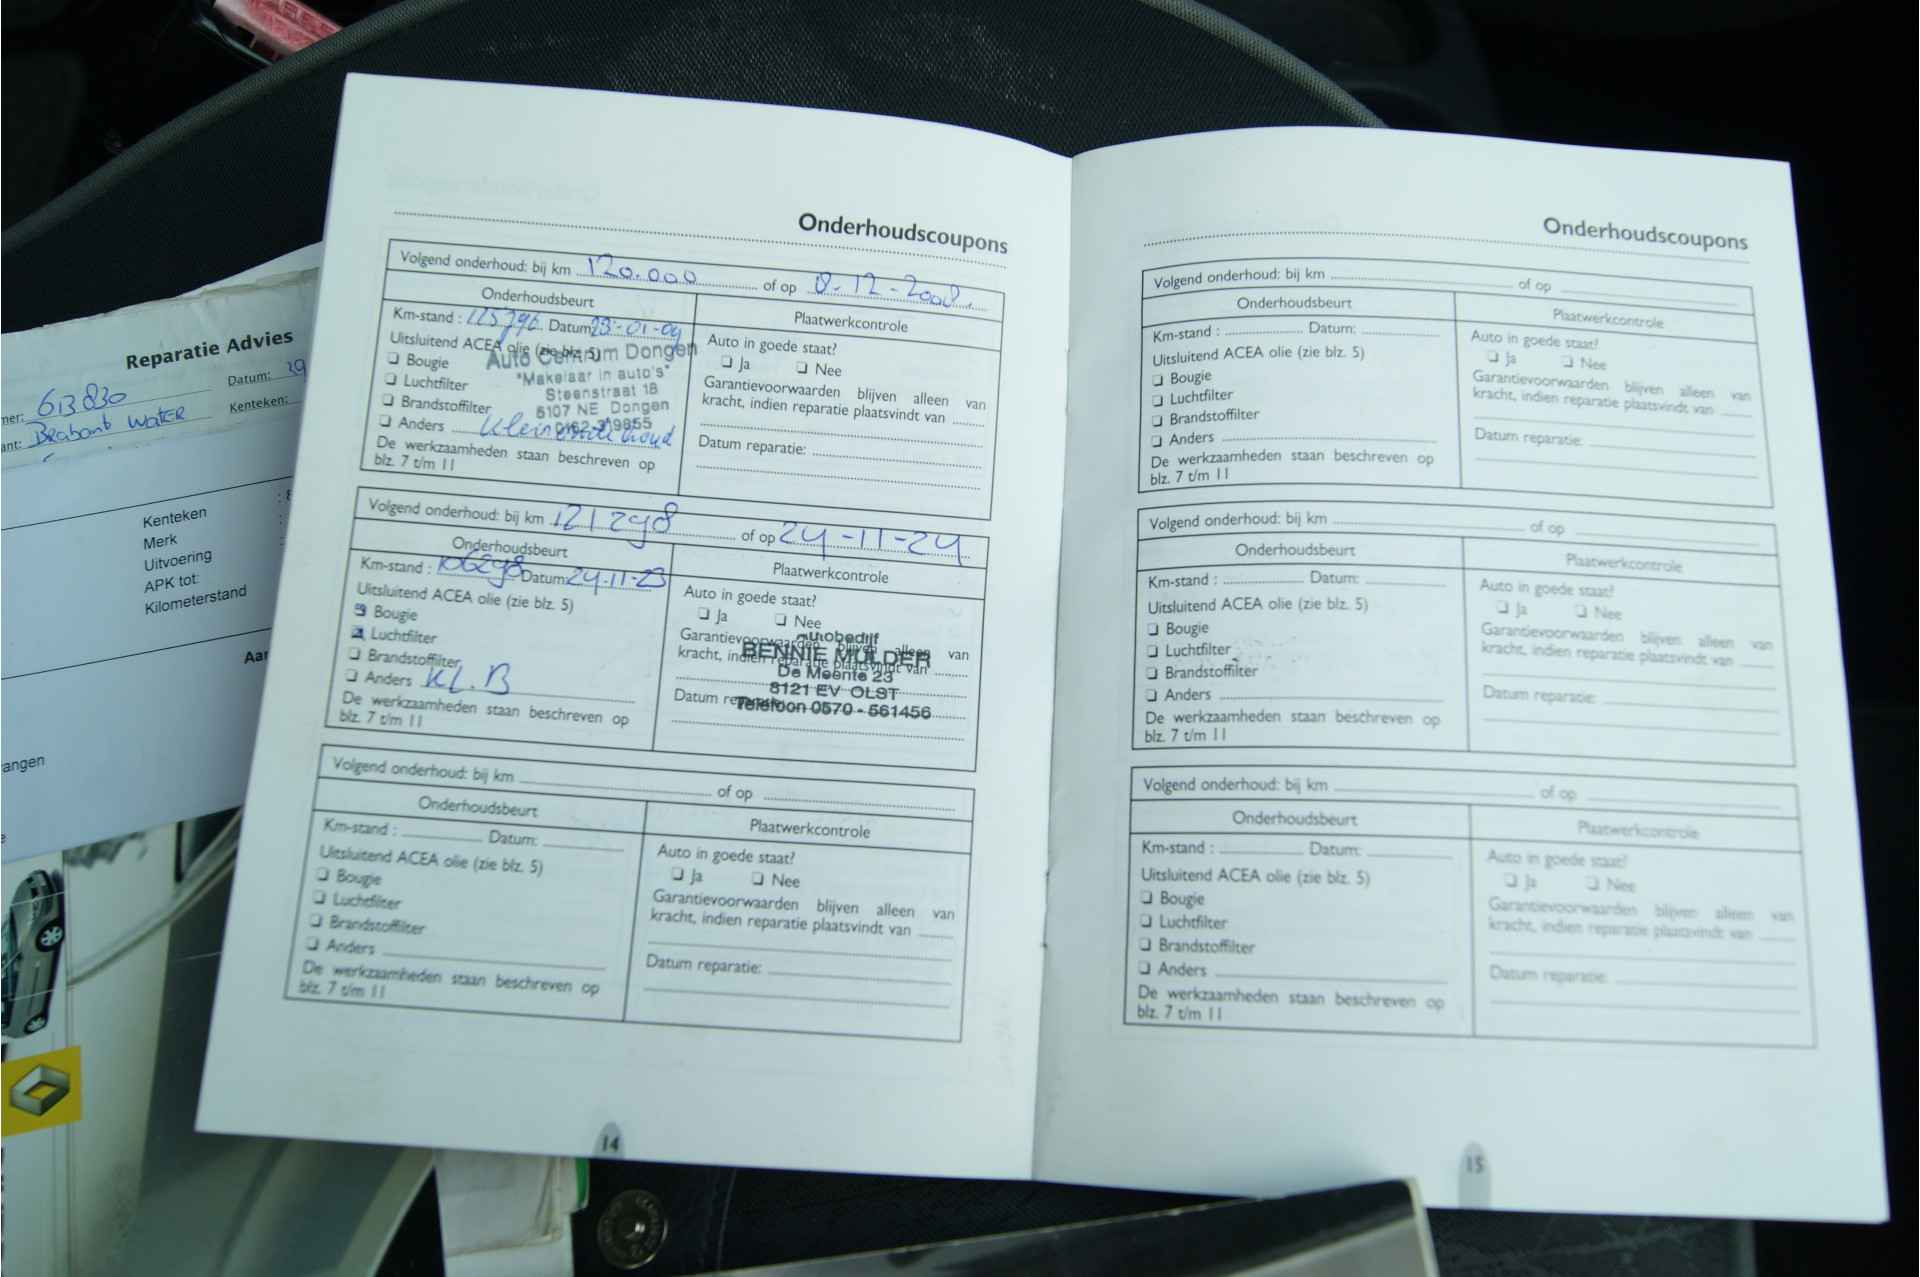 Reparatie Advies
Datum: 29
ner: 613830
ant: Brabant Water
Kenteken:
Kenteken : 8
Merk :
Uitvoering :
APK tot:
Kilometerstand
Aar
angen
Onderhoudscoupons
Volgend onderhoud: bij km 120.000 of op 8-12-2008
Onderhoudsbeurt
Plaatwerkcontrole
Km-stand : Datum: 23-01-09
Uitsluitend ACEA olie (zie blz. 5)
Bougie
Luchtfilter
Brandstoffilter
Anders klein onderhoud
De werkzaamheden staan beschreven op
blz. 7 t/m 11
Auto Centrum Dongen
"Makelaar in auto's"
Steenstraat 18
5107 NE Dongen
Auto in goede staat?
Ja Nee
Garantievoorwaarden blijven alleen van
kracht, indien reparatie plaatsvindt van
Datum reparatie:
Volgend onderhoud: bij km 121298 of op 24-11-24
Onderhoudsbeurt
Plaatwerkcontrole
Km-stand : 106298 Datum: 24-11-23
Uitsluitend ACEA olie (zie blz. 5)
Bougie
Luchtfilter
Brandstoffilter
Anders KL. B
De werkzaamheden staan beschreven op
blz. 7 t/m 11
Auto in goede staat?
Ja Nee
Garantievoorwaarden blijven alleen van
kracht, indien reparatie plaatsvindt van
Datum reparatie:
Autobedrijf
BENNIE MULDER
De Meente 23
8121 EV OLST
Telefoon 0570 - 561456
Volgend onderhoud: bij km of op
Onderhoudsbeurt
Plaatwerkcontrole
Km-stand : Datum:
Uitsluitend ACEA olie (zie blz. 5)
Bougie
Luchtfilter
Brandstoffilter
Anders
De werkzaamheden staan beschreven op
blz. 7 t/m 11
Auto in goede staat?
Ja Nee
Garantievoorwaarden blijven alleen van
kracht, indien reparatie plaatsvindt van
Datum reparatie:
14
Onderhoudscoupons
Volgend onderhoud: bij km of op
Onderhoudsbeurt
Plaatwerkcontrole
Km-stand : Datum:
Uitsluitend ACEA olie (zie blz. 5)
Bougie
Luchtfilter
Brandstoffilter
Anders
De werkzaamheden staan beschreven op
blz. 7 t/m 11
Auto in goede staat?
Ja Nee
Garantievoorwaarden blijven alleen van
kracht, indien reparatie plaatsvindt van
Datum reparatie:
Volgend onderhoud: bij km of op
Onderhoudsbeurt
Plaatwerkcontrole
Km-stand : Datum:
Uitsluitend ACEA olie (zie blz. 5)
Bougie
Luchtfilter
Brandstoffilter
Anders
De werkzaamheden staan beschreven op
blz. 7 t/m 11
Auto in goede staat?
Ja Nee
Garantievoorwaarden blijven alleen van
kracht, indien reparatie plaatsvindt van
Datum reparatie:
Volgend onderhoud: bij km of op
Onderhoudsbeurt
Plaatwerkcontrole
Km-stand : Datum:
Uitsluitend ACEA olie (zie blz. 5)
Bougie
Luchtfilter
Brandstoffilter
Anders
De werkzaamheden staan beschreven op
blz. 7 t/m 11
Auto in goede staat?
Ja Nee
Garantievoorwaarden blijven alleen van
kracht, indien reparatie plaatsvindt van
Datum reparatie:
15